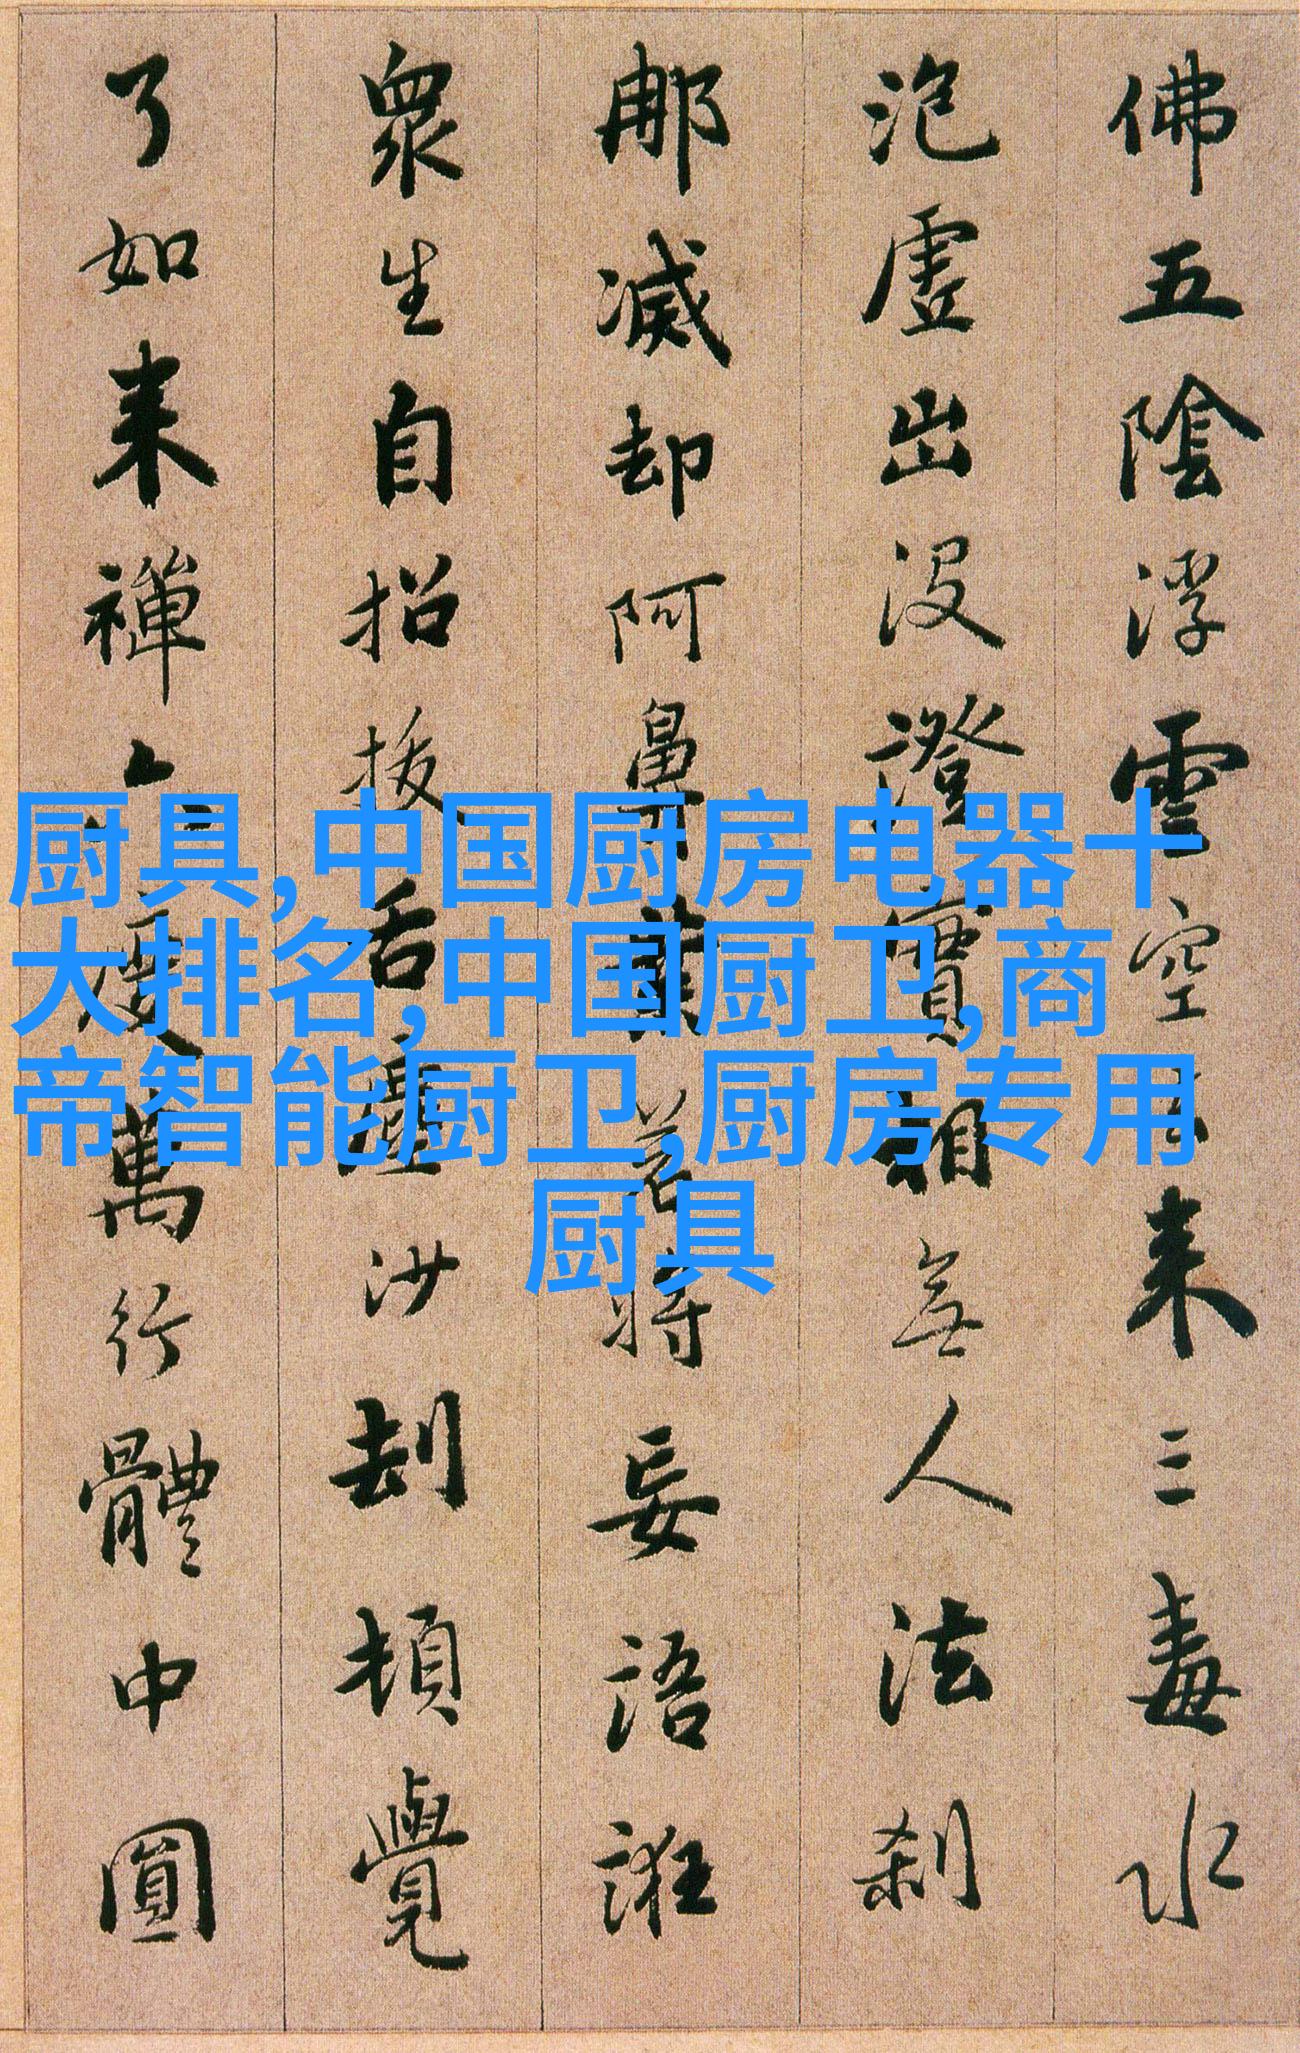 佛五陰浮雲空去来三毒水
泡虛出没證實相無人法刹
那滅却阿鼻業若將妄語誑
衆生自招拔舌塵沙劫頓覺
了如来禪六度萬行體中圓
厨具,中国厨房电器十
大排名,中国厨卫,商
帝智能厨卫,厨房专用
厨具